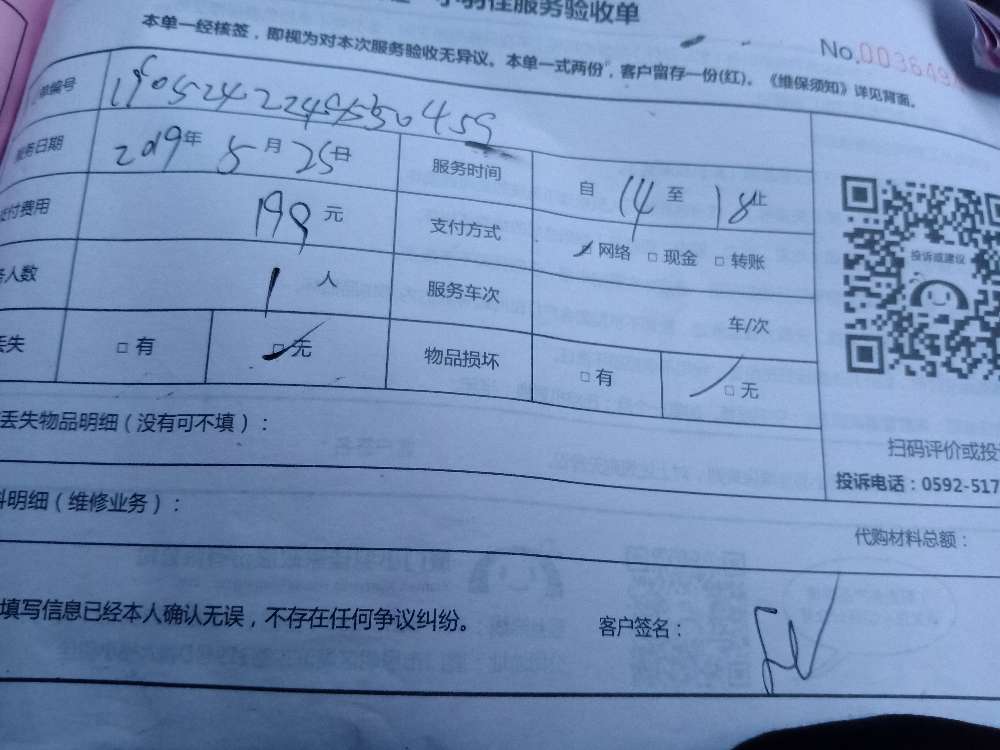 小羽佳服务验收单
本单一经核签，即视为对本次服务验收无异议。本单一式两份，客户留存一份(红)。《维保须知》详见背面。
No.003649
单编号
服务日期 2019年 5月 25日 服务时间 自 14 至 18 止
支付费用 198 元 支付方式 □网络 □现金 □转账
务人数 1 人 服务车次 车/次
丢失 □有 □无 物品损坏 □有 □无
投诉或建议
丢失物品明细（没有可不填）：
扫码评价或投
投诉电话：0592-517
料明细（维修业务）：
代购材料总额：
填写信息已经本人确认无误，不存在任何争议纠纷。 客户签名：